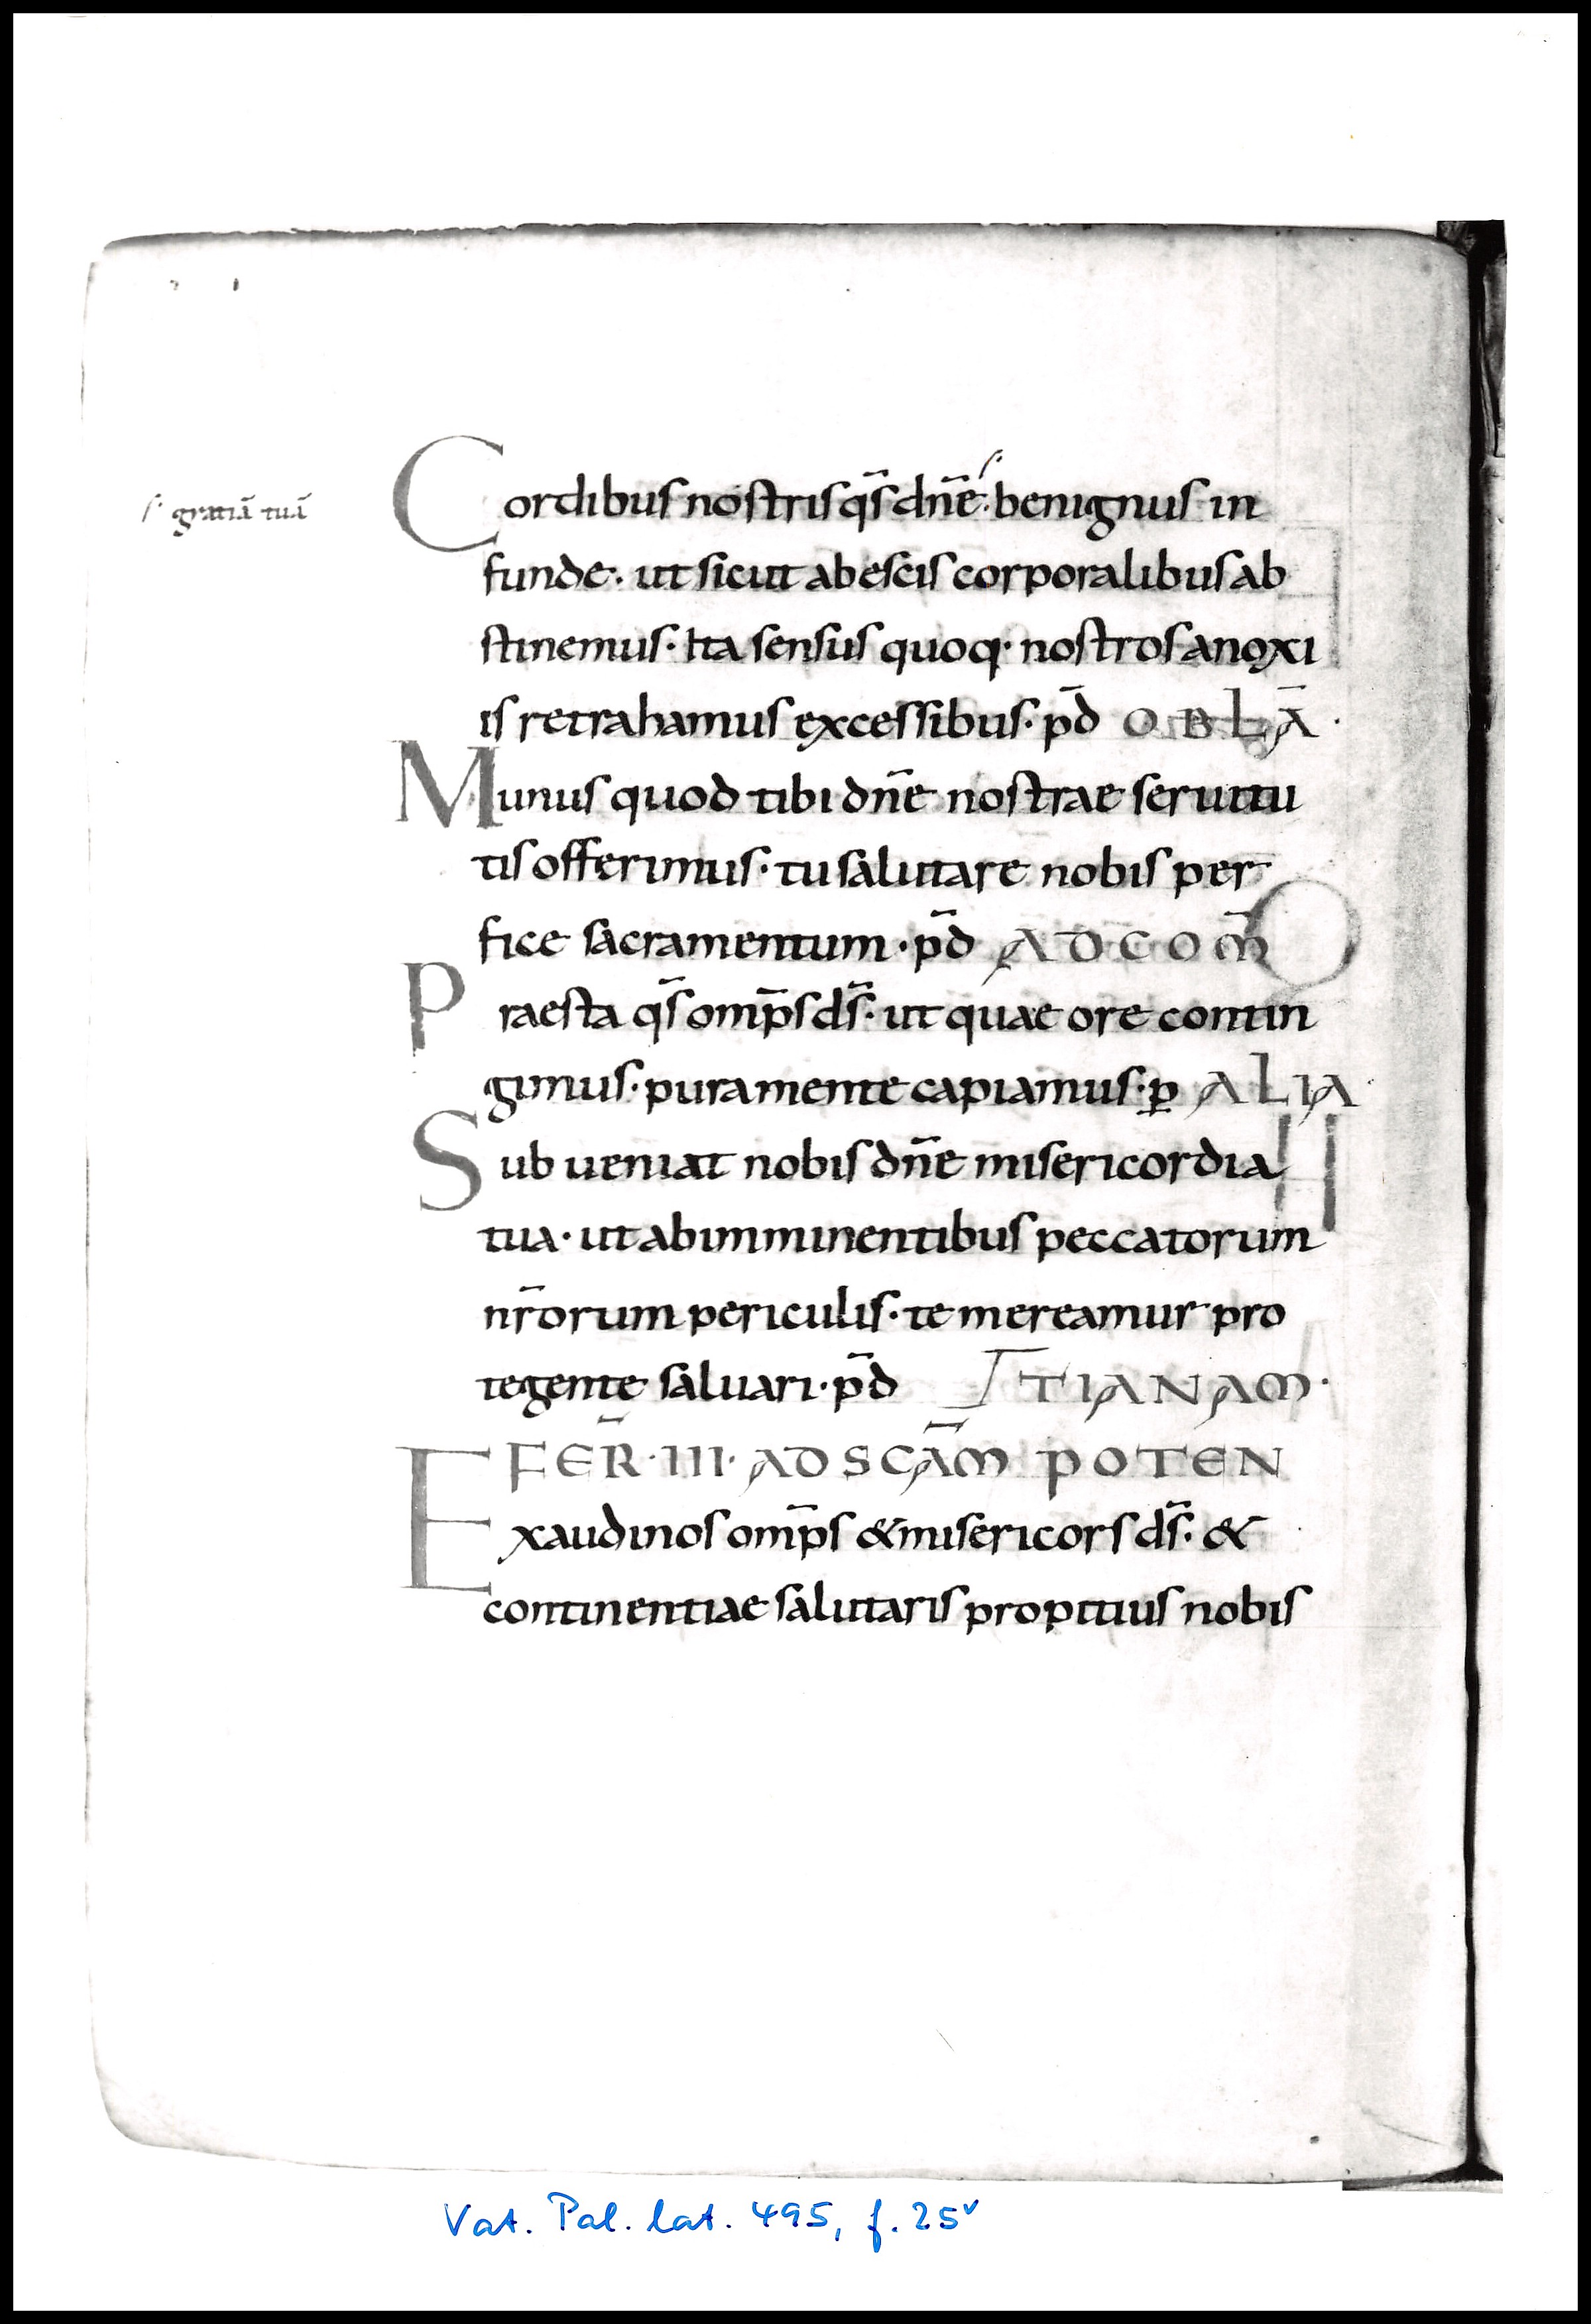 Cordibus nostris q̄s dn̄e · benignus in
s· gratiā tuā
funde · ut sicut ab escis corporalibus ab
stinemus · Ita sensus quoq· nostros a noxi
is retrahamus excessibus · p̄d OBLĀ ·
Munus quod tibi dn̄e nostrae seruitu
tis offerimus · tu salutare nobis per
fice sacramentum · p̄d AD COM̄
Praesta q̄s omp̄s d̄s · ut quae ore contin
gimus · pura mente capiamus · ꝑ ALIA
Sub ueniat nobis dn̄e misericordia
tua · ut ab imminentibus peccatorum
nr̄orum periculis · te mereamur pro
tegente saluari · p̄d TIANAM ·
FER̄ · III · AD SCĀM POTEN
Exaudi nos omp̄s & misericors d̄s · &
continentiae salutaris propitius nobis
Vat. Pal. lat. 495, f. 25v